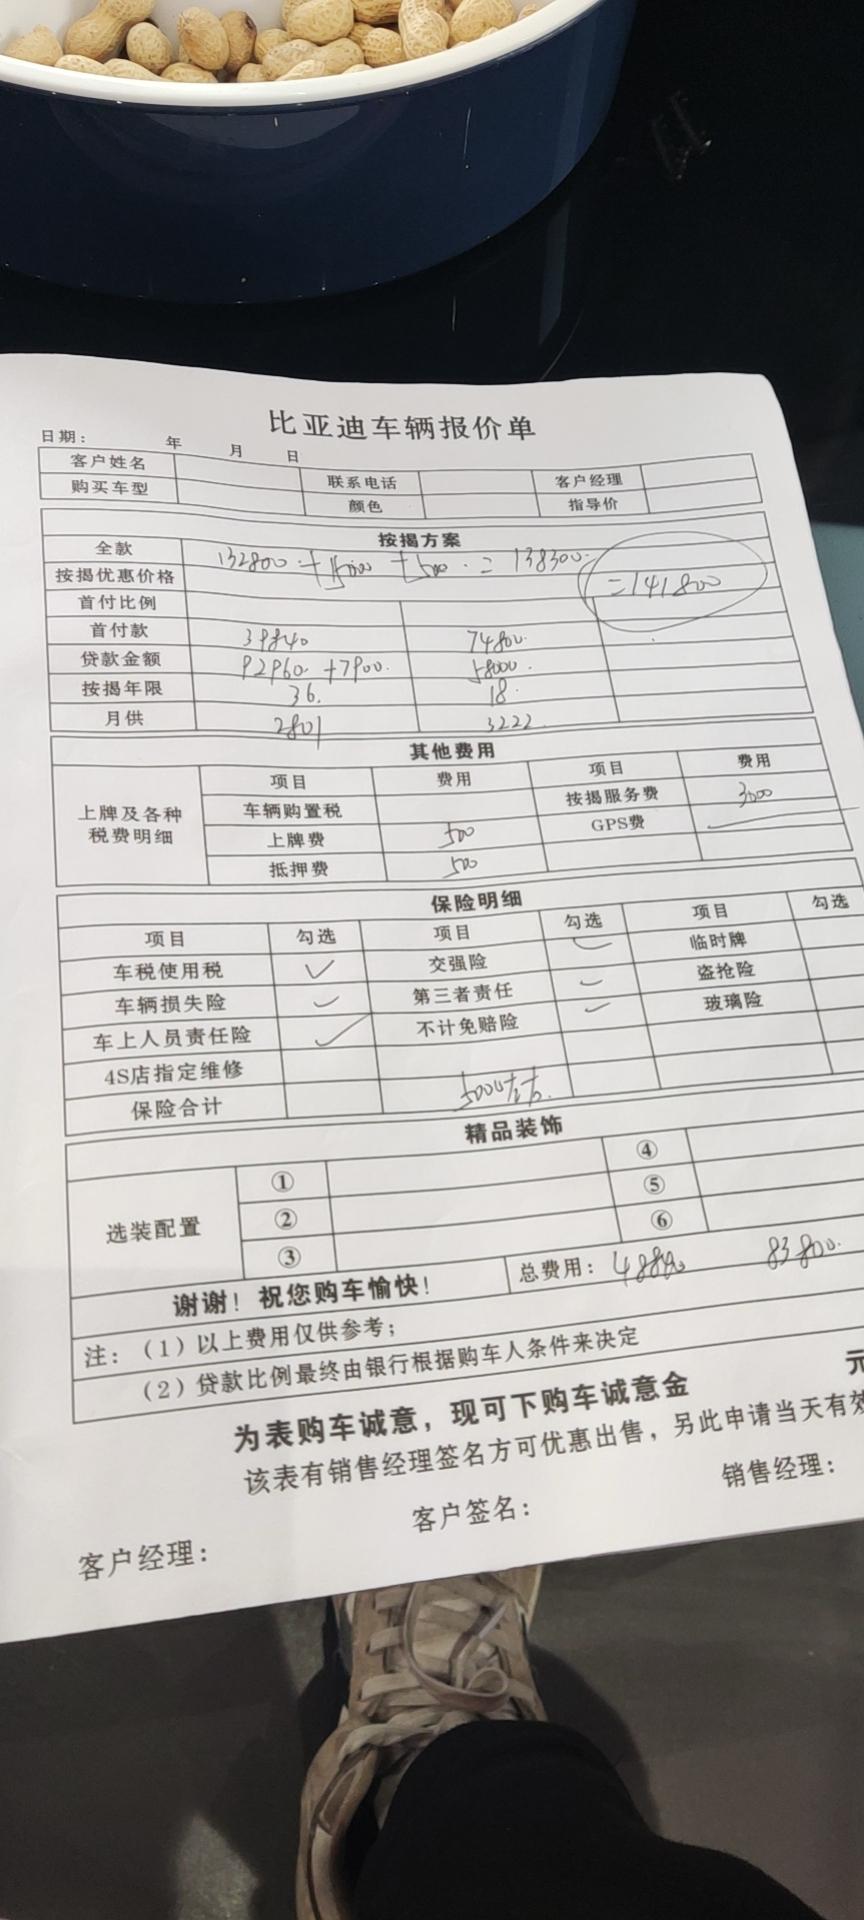 比亚迪车辆报价单
日期： 年 月 日
客户姓名 联系电话 客户经理
购买车型 颜色 指导价
按揭方案
全款 132800 + 5000 + 500 = 138300
按揭优惠价格 =141800
首付比例
首付款 39840 74800
贷款金额 92960 +7900 58000
按揭年限 36 18
月供 2801 3222
其他费用
上牌及各种税费明细 项目 费用 项目 费用
车辆购置税 按揭服务费 3000
上牌费 500 GPS费
抵押费 500
保险明细
项目 勾选 项目 勾选 项目 勾选
车税使用税 ✓ 交强险 ✓ 临时牌
车辆损失险 ✓ 第三者责任 ✓ 盗抢险
车上人员责任险 ✓ 不计免赔险 ✓ 玻璃险
4S店指定维修
保险合计 5000左右
精品装饰
选装配置 ① ④
② ⑤
③ ⑥
谢谢！祝您购车愉快！ 总费用：48840 83800
注：（1）以上费用仅供参考；
（2）贷款比例最终由银行根据购车人条件来决定
为表购车诚意，现可下购车诚意金 元
该表有销售经理签名方可优惠出售，另此申请当天有效
客户经理： 客户签名： 销售经理：